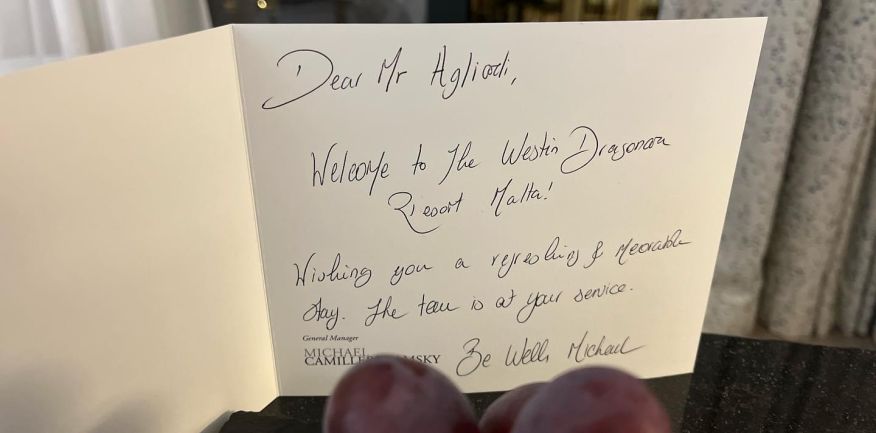 Dear Mr Agliodi,
Welcome to the Westin Dragonara
Resort Malta!
Wishing you a refreshing & Memorable
stay. The team is at your service.
General Manager
MICHAEL
CAMILLE MSKY
Be Well, Michael